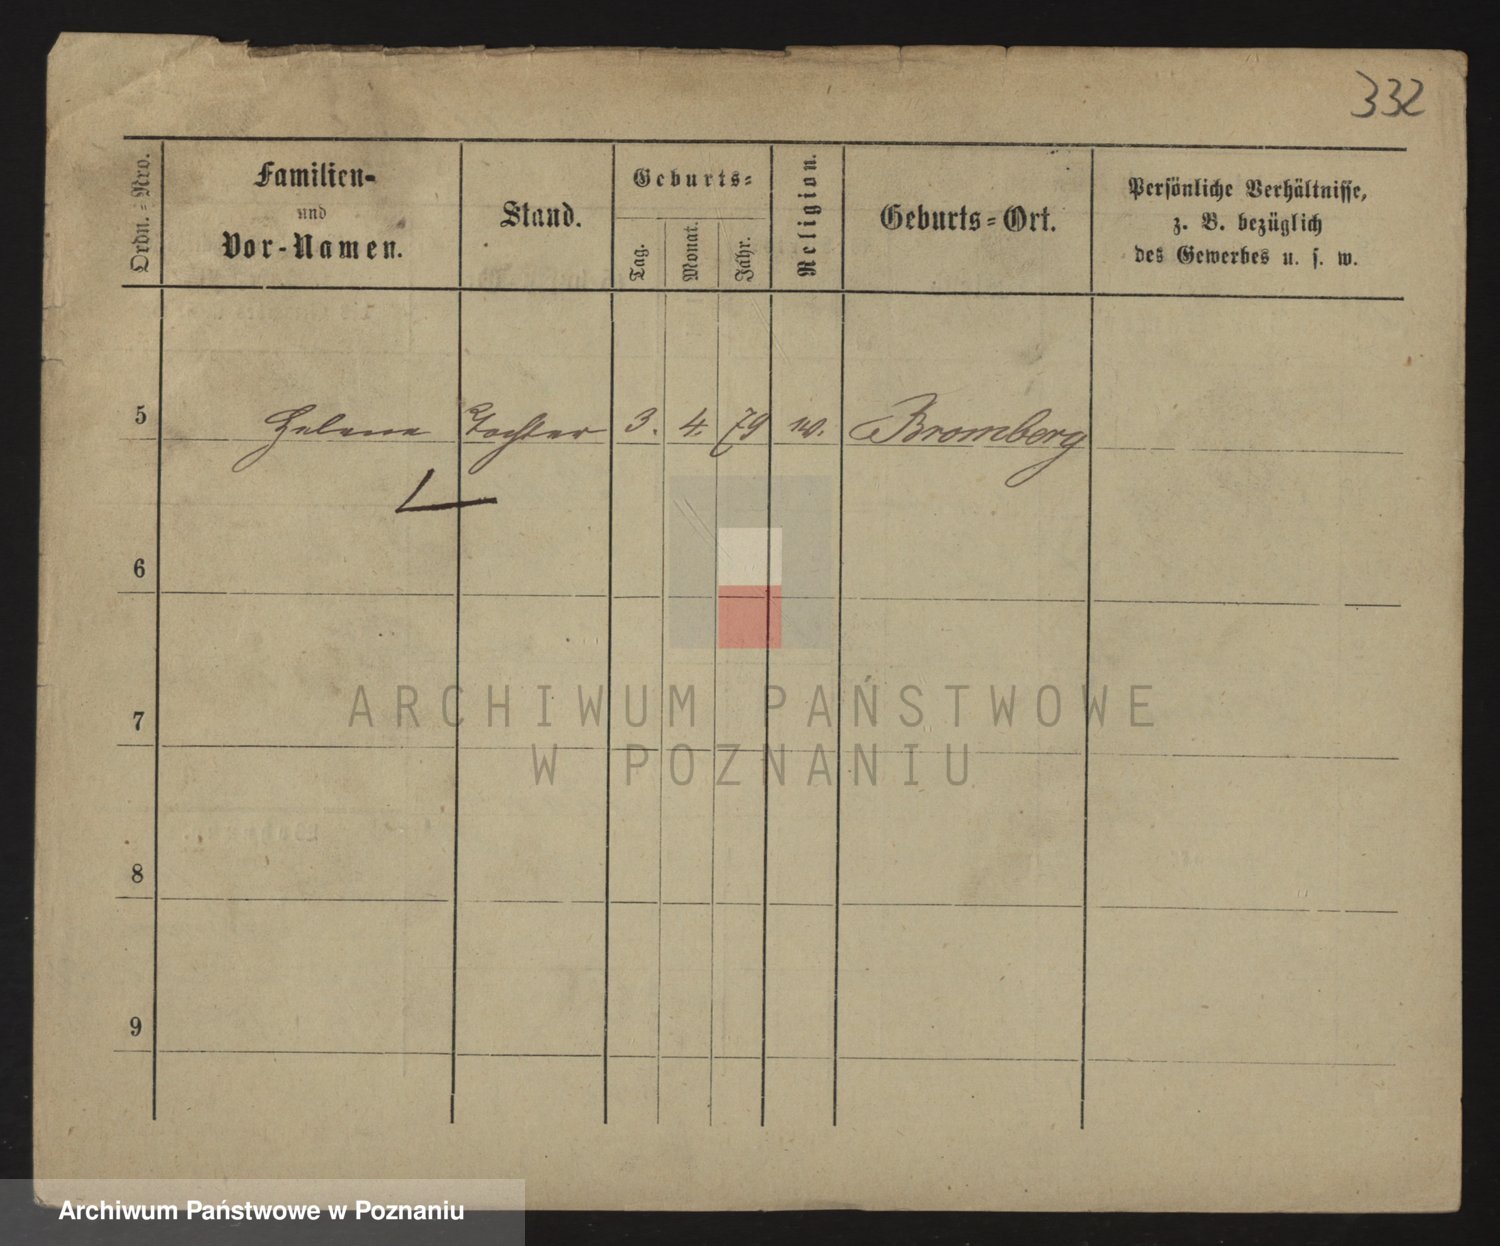 332
Ordn.=Nro.
Familien-
und
Vor-Namen.
Stand.
Geburts=
Tag.
Monat.
Jahr.
Religion.
Geburts=Ort.
Persönliche Verhältnisse,
z. B. bezüglich
des Gewerbes u. s. w.
5 Helene Tochter 3. 4. 79 Bromberg
6
7
8
9
ARCHIWUM PAŃSTWOWE
W POZNANIU
Archiwum Państwowe w Poznaniu